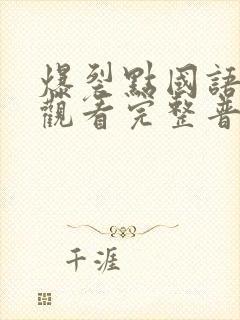 爆裂點國語
觀看完整普
千涯